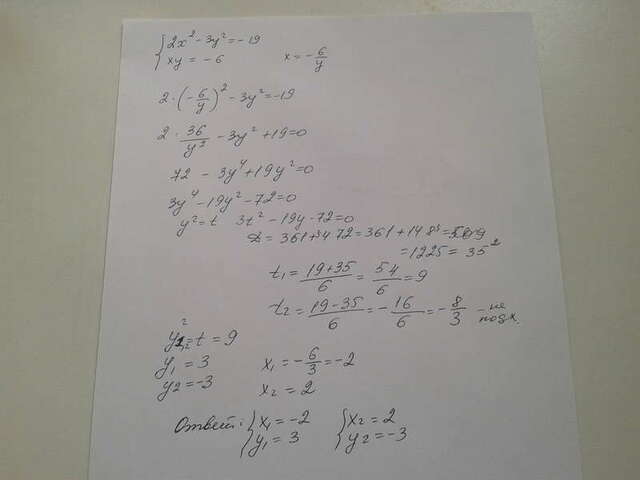 { 2x² - 3y² = -19
xy = -6    x = -6/y
2·(-6/y)² - 3y² = -19
2·36/y² - 3y² + 19 = 0
72 - 3y⁴ + 19y² = 0
3y⁴ - 19y² - 72 = 0
y² = t    3t² - 19y - 72 = 0
= 361 + 864
= 1225 = 35²
t₁ = (19+35)/6 = 54/6 = 9
t₂ = (19-35)/6 = -16/6 = -8/3 - не подх.
= t = 9
y₁ = 3    x₁ = -6/3 = -2
y₂ = -3    x₂ = 2
Ответ: { x₁ = -2    { x₂ = 2
y₁ = 3    y₂ = -3